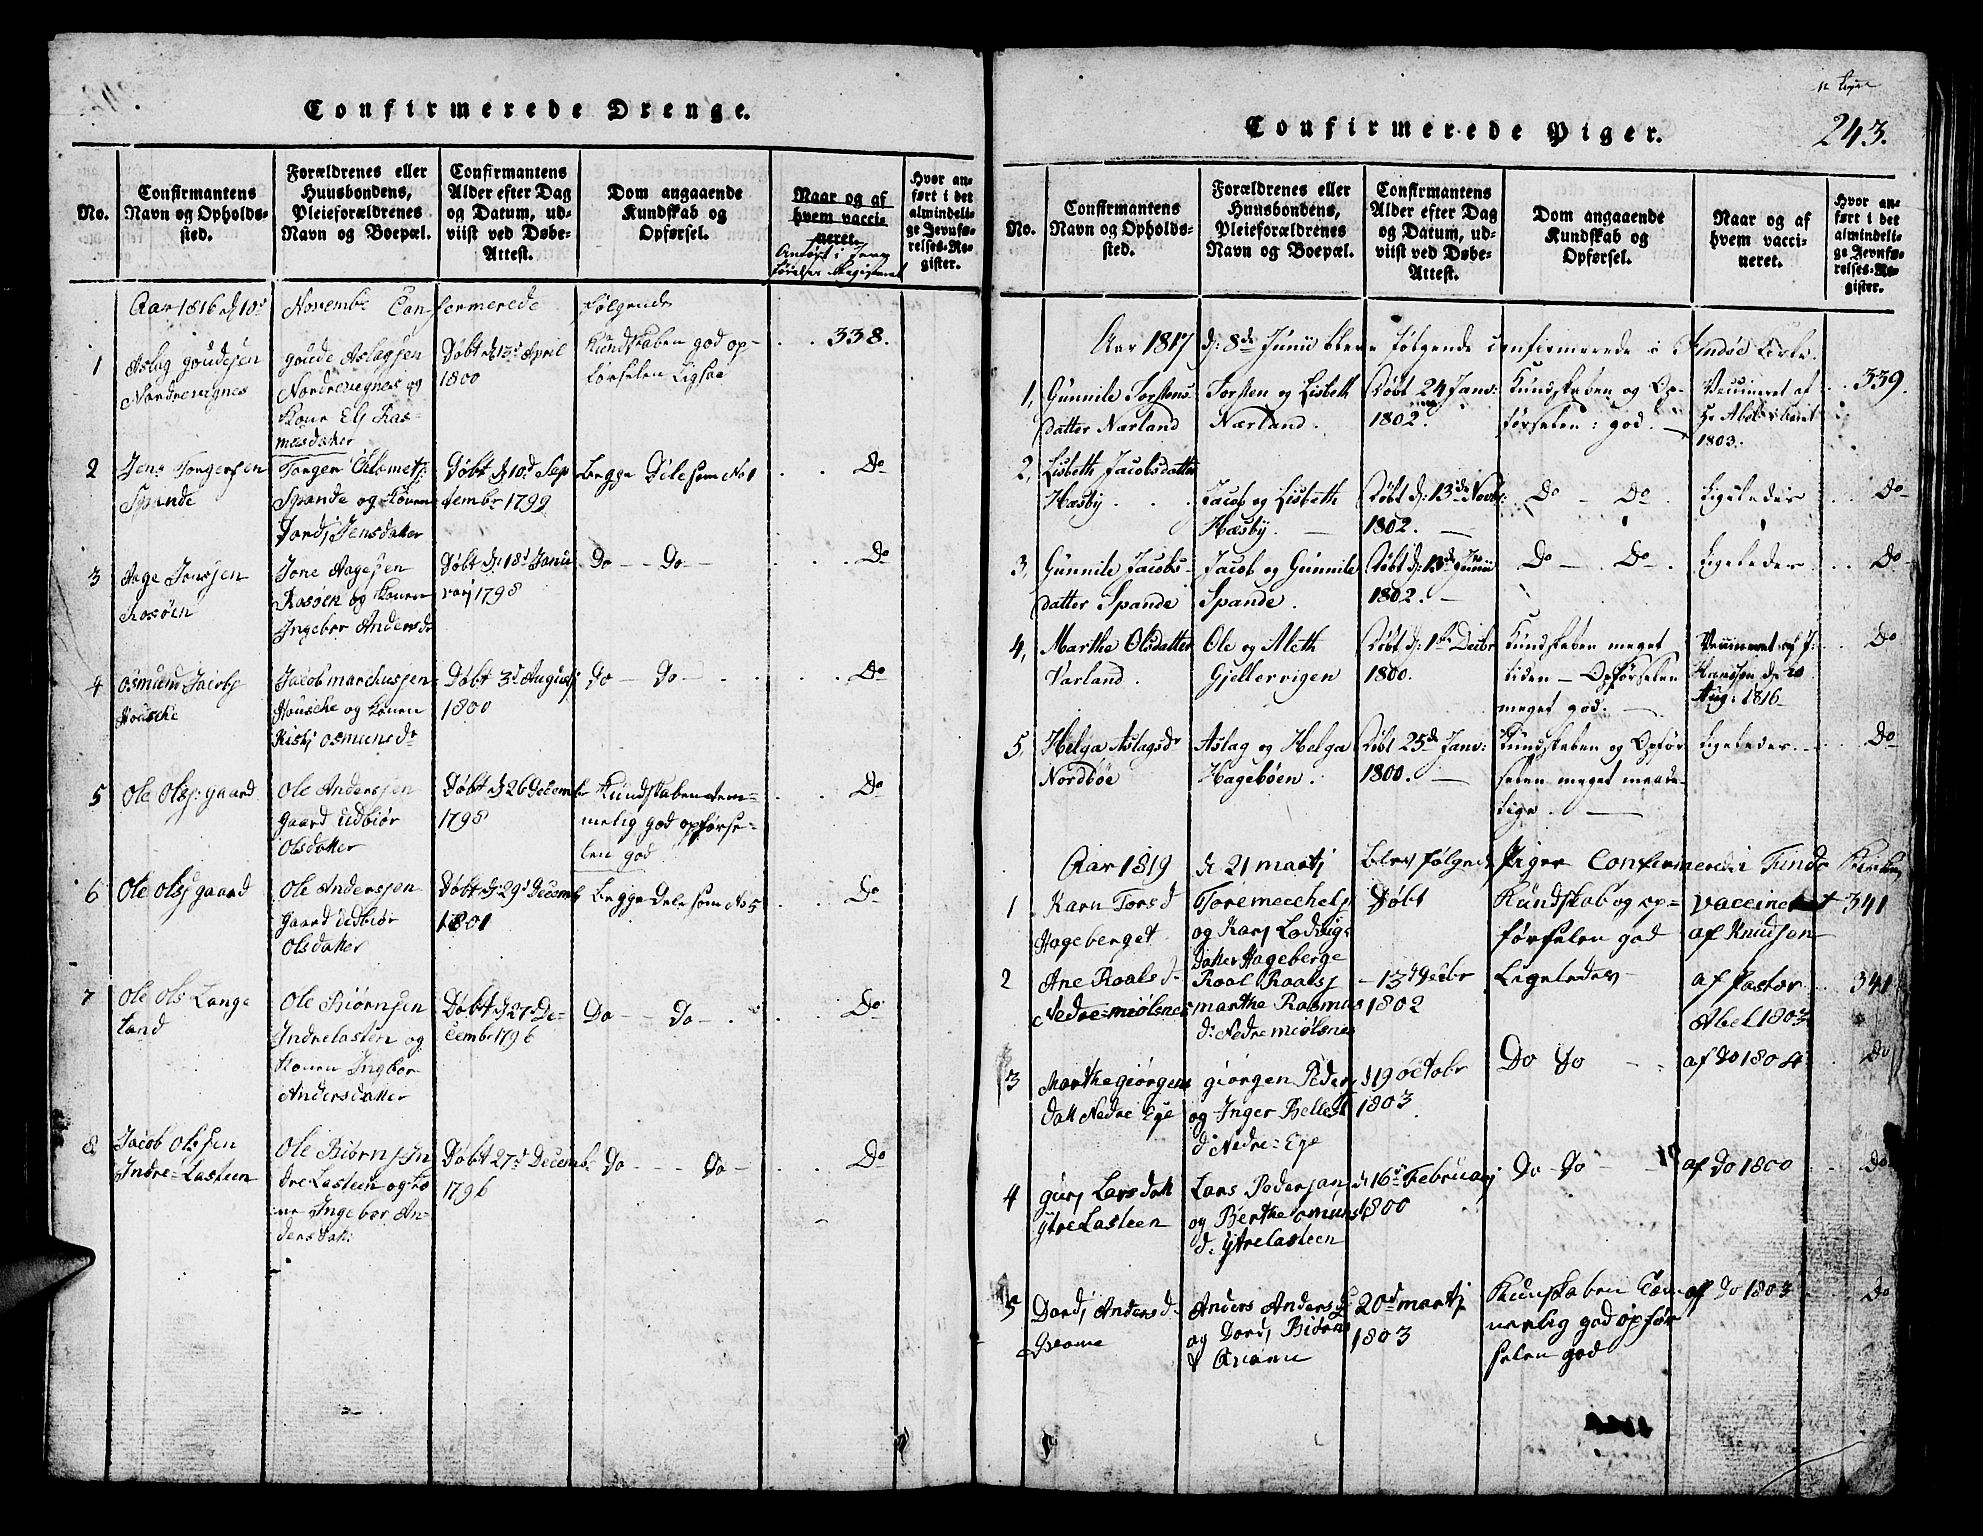 Confirmerede Drenge.
No.
Confirmantens
Navn og Opholds-
sted.
Forældrenes eller
Huusbondens,
Pleieforældrenes
Navn og Boepæl.
Confirmantens
Alder efter Dag
og Datum, ud-
viist ved Døbe-
Attest.
Dom angaaende
Kundskab og
Opførsel.
Naar og af
hvem vacci-
neret.
Anført i Jevn
førelses Registeret
Hvor an-
ført i det
almindeli-
ge Jevnfø-
relses-Re-
gister.
Aar 1816 d 10d Novembr Confermerede følgende
1
Aslag Goudesen
Nordrevignes
Goude Aslagsen
Nordrevignes og
Kone Elj Ras-
mesdatter
Døbt d 13d April
1800
Kundskaben god op-
førselen Ligsaa
338.
2
Jens Torgersen
Spande
Torger
Spande og Konen
Dordj Jensdatter
Døbt d 10d Sep
tembr 1799
Begge Dele som No 1
Do
3
Aage Jonsen
Rosøen
Jone Aagesen
Rosøen og Konen
Ingebor Anders dr
Døbt d: 18d Janu
varj 1798
Do - - Do -
Do
4
Osmun Jacobs
Housche
Jacob marchusjen
Housche og Konen
Kisty Osmuns dr
Døbt 3d Augustj
1800
Do - Do -
Do
5
Ole Olsj gaard
Ole Andersen
gaard Udbiør
Olsdatter
Døbt d 26 Decemb
1798
Kundskaben tem-
melig god opførse-
len god
Do
6
Ole Olsj gaard
Ole Andersen
gaard Udbiør
Olsdatter
Døbt d: 29d Decemb
1801
Begge Dele som No 5
Do
7
Ole Ols Lange
land
Ole Biørnsen
Indrelasten og
Konen Ingbor
Andersdatter
Døbt d 27d De-
cembr 1796
Do - - Do -
Do
8
Jacob Olssen
Indre=Lasteen
Ole Biørnsj In
dre Lasteen og Ko
ne Ingebor An-
dersdatt:
Døbt 27d Decemb.
1796
Do - - Do -
Do
Confirmerede Piger.
243.
No.
Confirmantens
Navn og Opholds-
sted.
Forældrenes eller
Huusbondens,
Pleieforældrenes
Navn og Boepæl.
Confirmantens
Alder efter Dag
og Datum, ud-
viist ved Døbe-
Attest.
Dom angaaende
Kundskab og
Opførsel.
Naar og af
hvem vacci-
neret.
Hvor an-
ført i det
almindeli-
ge Jevnfø-
relses-Re-
gister.
Aar 1817 d: 8de Junii bleve følgende confirmerede i Kirke.
1,
Gunnile Torstens
datter Nærland
Torsten og Lisbeth
Nærland.
Døbt 24 Janv:
1802.
Kundskaben og Op-
førselen: god.
Vaccineret af
Hr Abel
1803.
339.
2,
Lisbeth Jacobsdatter
Hæsby
Jacob og Lisbeth
Hæsby.
Døbt d: 13de Novbr:
1802.
Do - Do
Ligeledes
Do
3,
Gunnile Jacobs
datter Spande
Jacob og Gunnile
Spande.
Døbt d: 13de Junii
1802.
Do - Do.
Ligeledes
Do
4,
Marthe Olsdatter
Varland.
Ole og Aleth
Gjellervigen
Døbt d: 1ste Decbr
1800.
Kundskaben meget
liden - Opførselen
meget god.
Vaccineret af J:
Knudsen d: 20
Aug: 1816
Do
5,
Helga Aslagsdr
Nordbøe
Aslag og Helga
Hagebøen.
Døbt 25de Janv:
1800.
Kundskaben og Opfør
selen meget maade-
lige.
Ligeledes
Do
Aar 1819 d 21 martj blev følgende Piger Confirmerede i Kirke
1
Karn Torsd
Hageberget
Tore
og Karj Lodvigs
datter Hageberge
Døbt
Kundskab og op=
førselen god
vaccineret
af Knudsen
341
2
Ane Roalsd
Nedre=miølsnes
Roal Roalsj
marthe Rasmus
d: Nedre miølsnes
- 13d Decbr
1802
Ligeledes
af Pastor
Abel 1803
341
3
Marthe giørgens
datt Nedre Ege
giørgen Peders
og Inger
d: Nedre=Ege
d 19 octobr
1803
Do Do
af Do 1804
Do
4
gurj Larsdatt
ytre Lasteen
Lars Pedersen
og Berthe omunds
d: ytre Lasteen
d 16d Februarj
1800
Do - Do
af Do 1800
Do
5
Dordj Andersd
Anders Andersj
og Dordj Biørns
d
d: 20d martj
1803
Kunskaben Tem
merlig god opfør
selen god
af Do 1803
Do